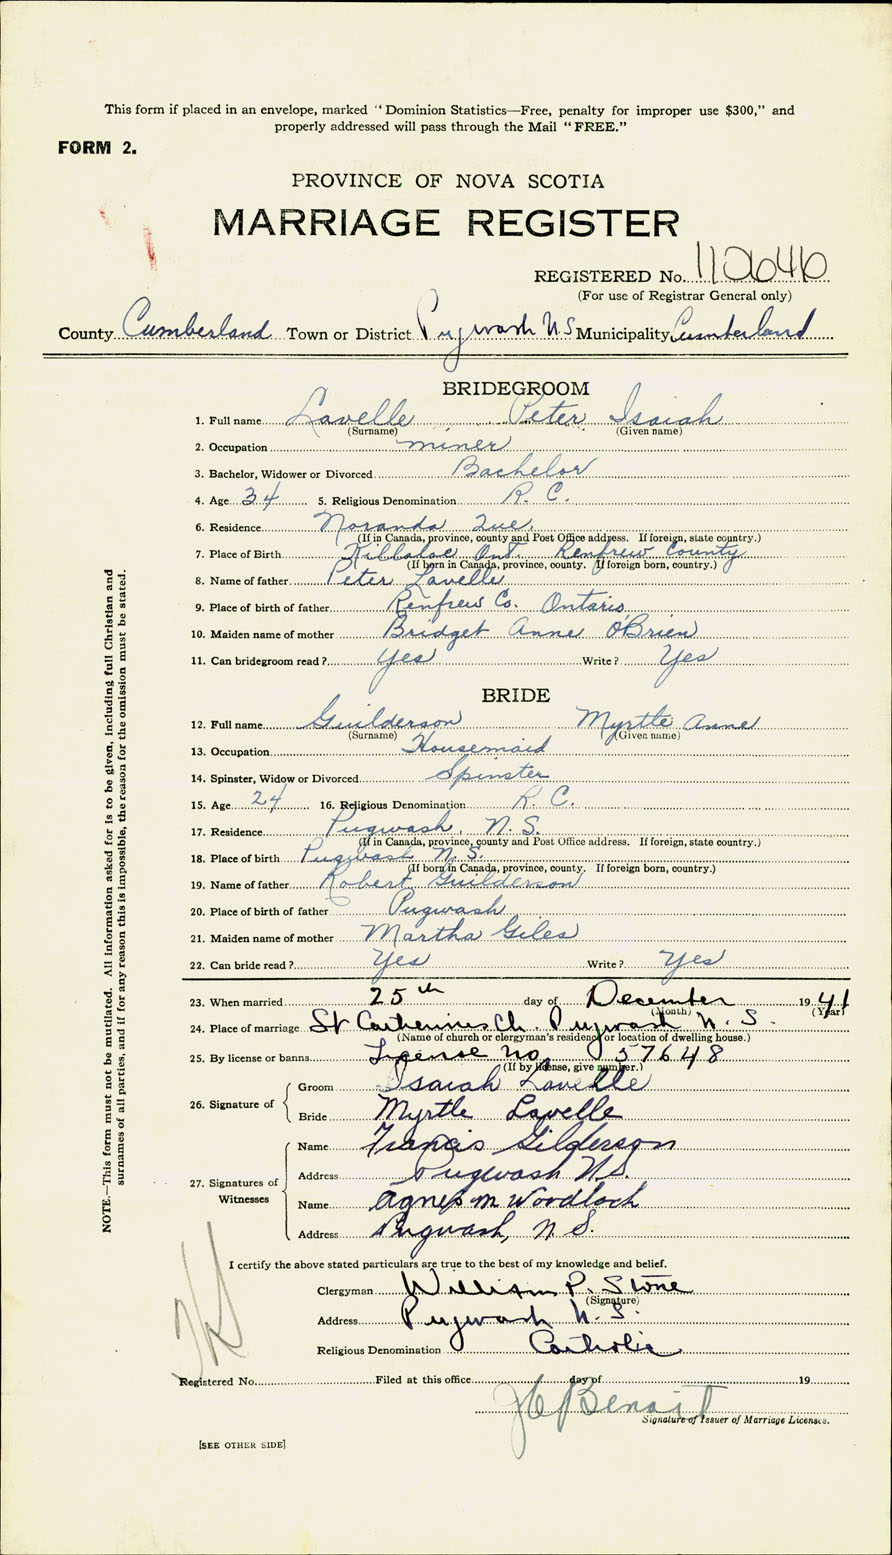 This form if placed in an envelope, marked "Dominion Statistics—Free, penalty for improper use $300," and
properly addressed will pass through the Mail "FREE."
FORM 2.
PROVINCE OF NOVA SCOTIA
MARRIAGE REGISTER
REGISTERED No. 112646
(For use of Registrar General only)
County Cumberland Town or District Pugwash N S Municipality Cumberland
BRIDEGROOM
1. Full name Lavelle Peter Isaiah
(Surname) (Given name)
2. Occupation miner
3. Bachelor, Widower or Divorced Bachelor
4. Age 34 5. Religious Denomination R. C.
6. Residence Noranda Que.
(If in Canada, province, county and Post Office address. If foreign, state country.)
7. Place of Birth Killaloe Ont. Renfrew County
(If born in Canada, province, county. If foreign born, country.)
8. Name of father Peter Lavelle
9. Place of birth of father Renfrew Co. Ontario
10. Maiden name of mother Bridget Anne O'Brien
11. Can bridegroom read? Yes Write? Yes
BRIDE
12. Full name Guilderson Myrtle Anne
(Surname) (Given name)
13. Occupation Housemaid
14. Spinster, Widow or Divorced Spinster
15. Age 24 16. Religious Denomination R. C.
17. Residence Pugwash, N. S.
(If in Canada, province, county and Post Office address. If foreign, state country.)
18. Place of birth Pugwash N. S.
(If born in Canada, province, county. If foreign born, country.)
19. Name of father Robert Guilderson
20. Place of birth of father Pugwash
21. Maiden name of mother Martha Giles
22. Can bride read? Yes Write? Yes
23. When married 25th day of December 1941
(Month) (Year)
24. Place of marriage St Catherines Ch. Pugwash N. S.
(Name of church or clergyman's residence or location of dwelling house.)
25. By license or banns License no. 57648
(If by license, give number.)
26. Signature of
Groom Isaiah Lavelle
Bride Myrtle Lavelle
27. Signatures of Witnesses
Name Francis Gilderson
Address Pugwash N.S.
Name Agnes M Woodlock
Address Pugwash, N. S.
I certify the above stated particulars are true to the best of my knowledge and belief.
Clergyman William P. Stone
(Signature)
Address Pugwash N. S.
Religious Denomination Catholic
Registered No. Filed at this office day of 19
Benoit
Signature of Issuer of Marriage Licenses.
[SEE OTHER SIDE]
NOTE.—This form must not be mutilated. All information asked for is to be given, including full Christian and
surnames of all parties, and if for any reason this is impossible, the reason for the omission must be stated.